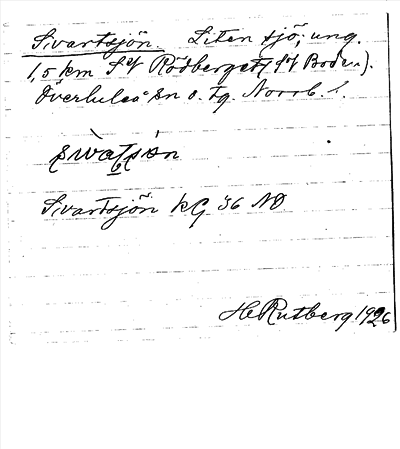 Svartsjön. Liten sjö, ung.
1,5 km SV Rödberget (SV Boden).
Överluleå sn o. tg. Norrb. l.
Svartsjön kG 36 NO
H Rutberg 1926